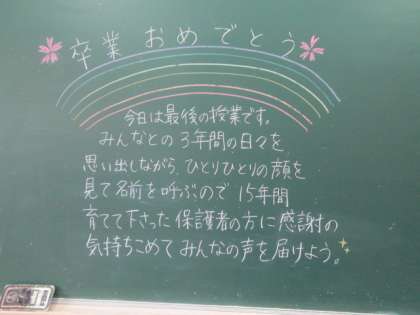 卒業おめでとう
今日は最後の授業です。
みんなとの3年間の日々を
思い出しながら、ひとりひとりの顔を
見て名前を呼ぶので15年間
育てて下さった保護者の方に感謝の
気持ちこめてみんなの声を届けよう。